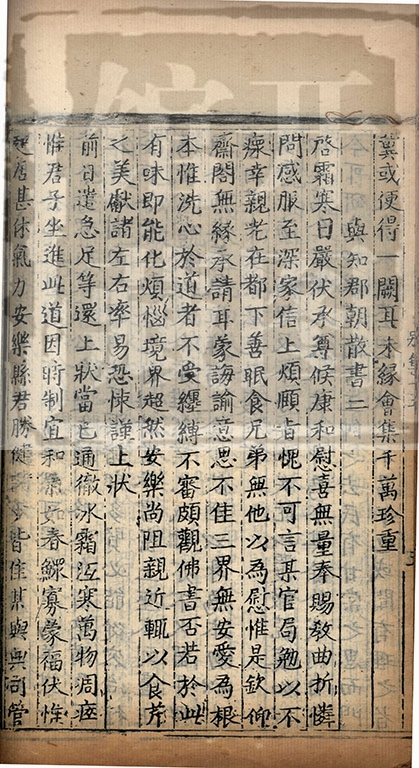 冀或便得一闕耳未緣會集千萬珍重
與知郡朝散書二
啓霜寒日嚴伏承尊候康和慰喜無量奉賜教曲折憐
問感服至深家信上煩顧旨愧不可言某官局勉以不
瘝幸親老在都下善眠食兄弟無他以為慰惟是欽仰
齋閤無緣承請耳蒙誨諭意思不佳三界無安愛為根
本惟洗心於道者不受纏縛不審頗觀佛書否若於此
有味即能化煩惱境界超然安樂尚阻親近輒以食芹
之美獻諸左右率易恐悚謹上狀
前日遣急足等還上狀當已通徹冰霜沍寒萬物凋瘁
惟君子坐進此道因時制宜和氣如春鰥寡蒙福伏惟
起居甚休氣力安樂縣君勝健 皆佳某與與何管